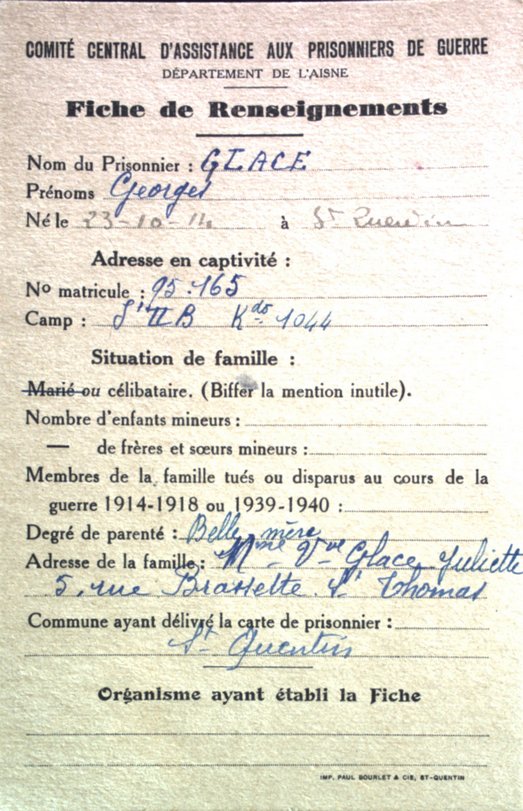 COMITÉ CENTRAL D'ASSISTANCE AUX PRISONNIERS DE GUERRE
DÉPARTEMENT DE L'AISNE
Fiche de Renseignements
Nom du Prisonnier : GLACE
Prénoms Georges
Né le 23-10-14 à St Quentin
Adresse en captivité :
No matricule : 95.165
Camp : St II B Kdo 1044
Situation de famille :
Marié ou célibataire. (Biffer la mention inutile).
Nombre d'enfants mineurs :
— de frères et sœurs mineurs :
Membres de la famille tués ou disparus au cours de la
guerre 1914-1918 ou 1939-1940 :
Degré de parenté : Belle mère
Adresse de la famille : Mme Vve Glace Juliette
5, rue Brassette St Thomas
Commune ayant délivré la carte de prisonnier :
St Quentin
Organisme ayant établi la Fiche
IMP. PAUL BOURLET & CIE, ST-QUENTIN